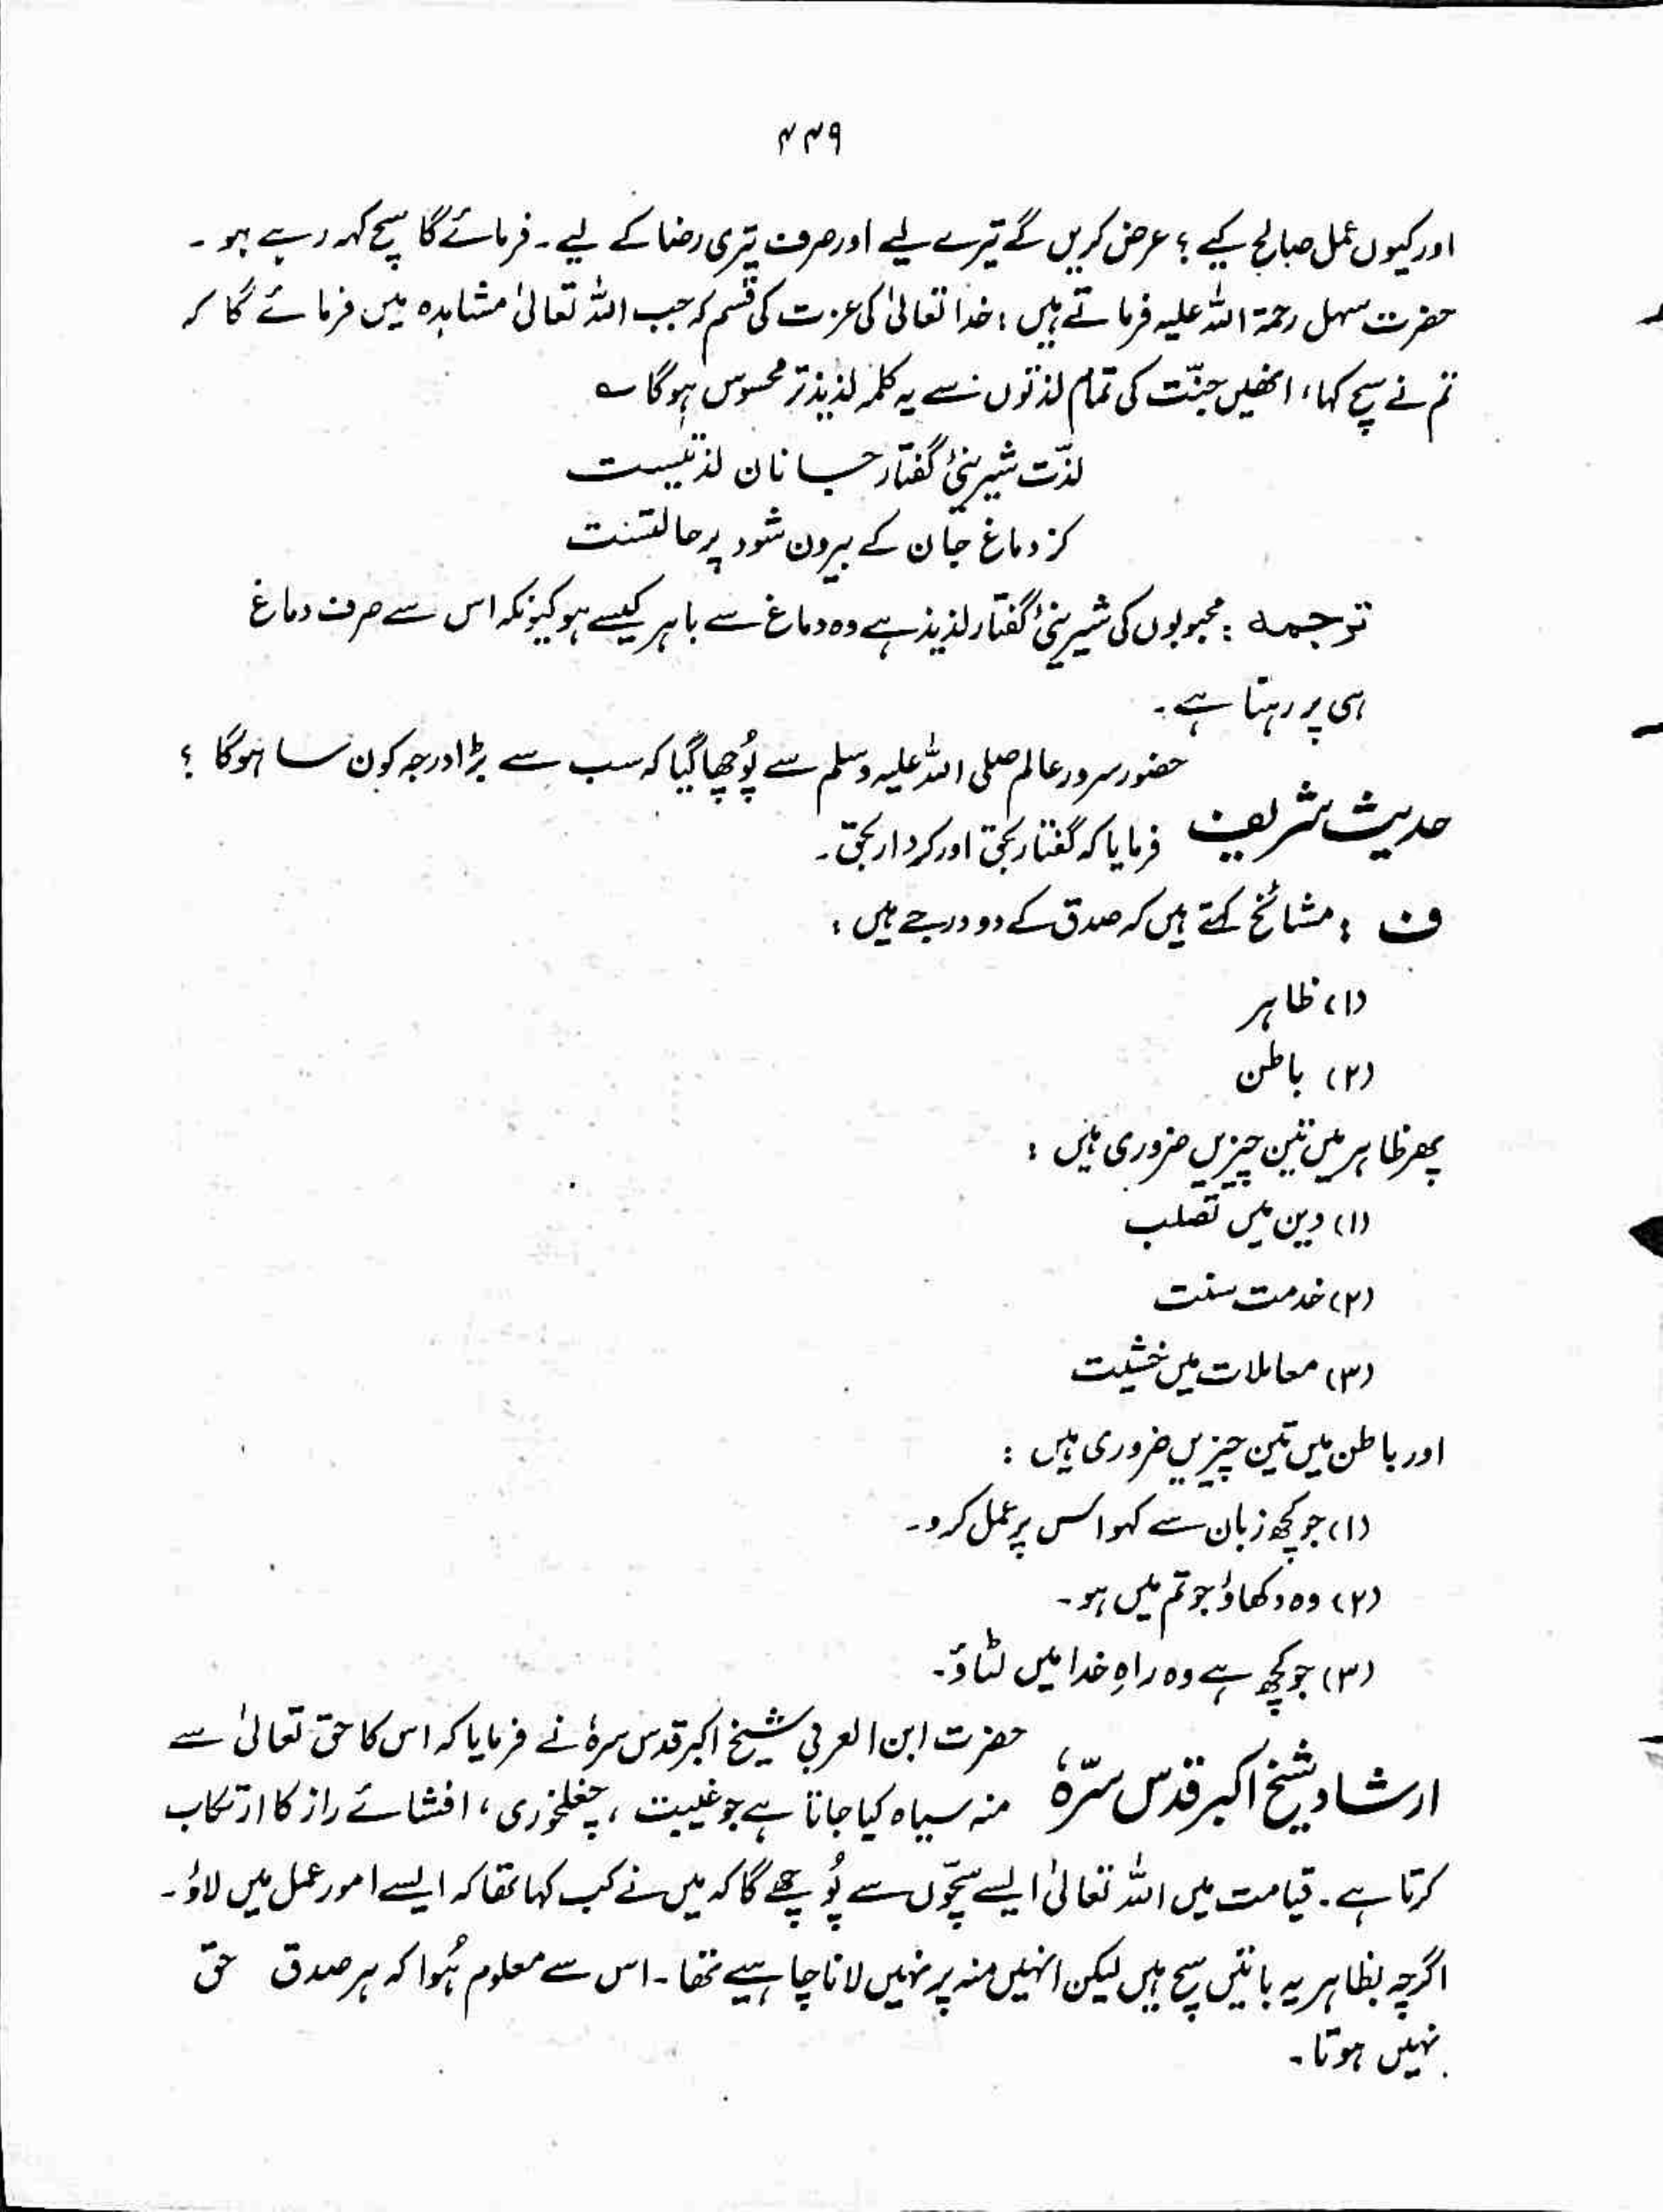 ۴۴۹
اور کیوں عمل صالح کیے ؟ عرض کریں گے تیرے لیے اور صرف تیری رضا کے لیے ۔ فرمائے گا سچ کہہ رہے ہو ۔
حضرت سہل رحمۃ اللہ علیہ فرماتے ہیں : خدا تعالیٰ کی عزت کی قسم کہ جب اللہ تعالیٰ مشاہدہ میں فرمائے گا کہ
تم نے سچ کہا ، انھیں جنّت کی تمام لذتوں سے یہ کلمہ لذیذ تر محسوس ہوگا ؎
لذّت شیرینیٔ گفتار جانان لذتیست
کز دماغ جان کے بیرون شود پر حالتست
ترجمہ : محبوبوں کی شیرینیٔ گفتار لذیذ ہے وہ دماغ سے باہر کیسے ہو کیونکہ اس سے صرف دماغ
ہی پر رہتا ہے ۔
حضور سرور عالم صلی اللہ علیہ وسلم سے پُوچھا گیا کہ سب سے بڑا درجہ کون سا ہوگا ؟
حدیث شریف فرمایا کہ گفتار بحق اور کردار بحق ۔
ف : مشائخ کہتے ہیں کہ صدق کے دو درجے ہیں :
(۱) ظاہر
(۲) باطن
پھر ظاہر میں تین چیزیں ضروری ہیں :
(۱) دین میں تصلب
(۲) خدمت سنت
(۳) معاملات میں خشیت
اور باطن میں تین چیزیں ضروری ہیں :
(۱) جو کچھ زبان سے کہو اس پر عمل کرو ۔
(۲) وہ دکھاؤ جو تم میں ہو ۔
(۳) جو کچھ ہے وہ راہِ خدا میں لٹاؤ ۔
حضرت ابن العربی شیخ اکبر قدس سرہٗ نے فرمایا کہ اس کا حق تعالیٰ سے
ارشاد شیخ اکبر قدس سرّہٗ منہ سیاہ کیا جاتا ہے جو غیبت ، چغلخوری ، افشائے راز کا ارتکاب
کرتا ہے ۔ قیامت میں اللہ تعالیٰ ایسے سچّوں سے پُوچھے گا کہ میں نے کب کہا تھا کہ ایسے امور عمل میں لاؤ ۔
اگرچہ بظاہر یہ باتیں سچ ہیں لیکن انہیں منہ پر نہیں لانا چاہیے تھا ۔ اس سے معلوم ہُوا کہ ہر صدق حق
نہیں ہوتا ۔